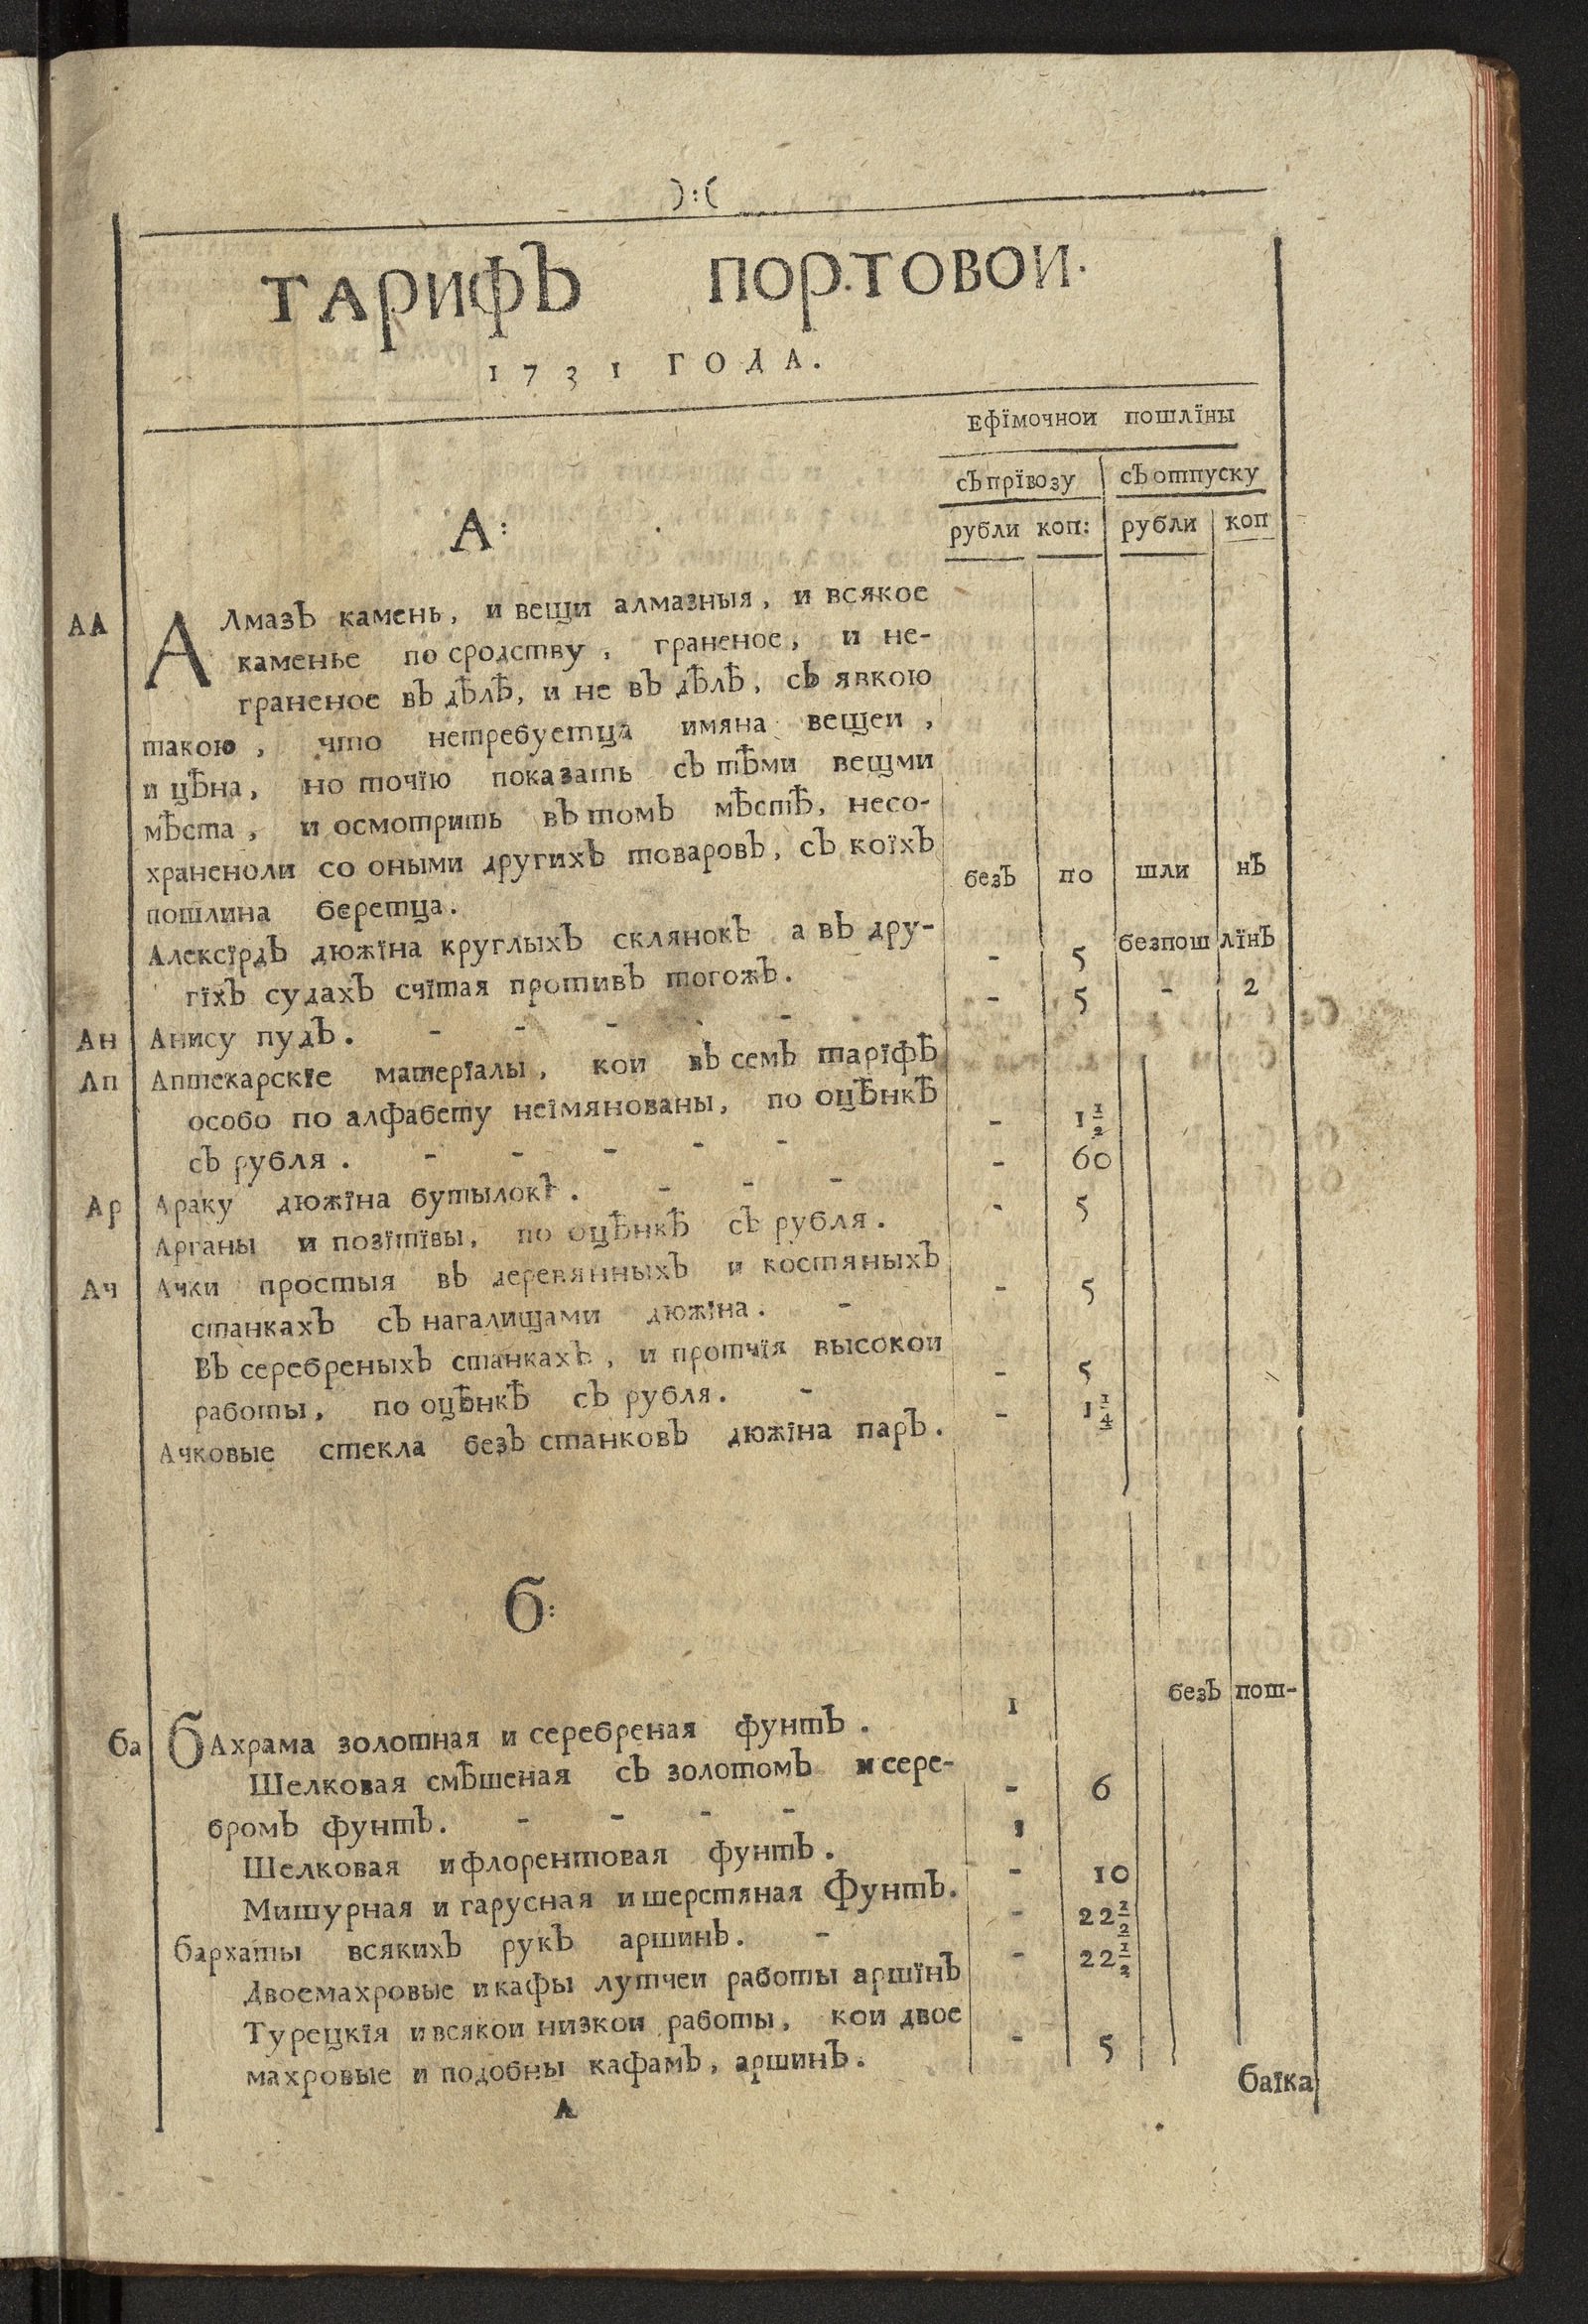 ):(
ТАРИФЪ ПОРТОВОИ.
1731 ГОДА.
Ефїмочнои пошлїны
съ прївозу съ отпуску
рубли коп: рубли коп
А:
АЛ АЛмазъ камень, и вещи алмазныя, и всякое
каменье по сродству, граненое, и не-
граненое въ дѣлѣ, и не въ дѣлѣ, съ явкою
такою, что нетребуетца имяна вещеи,
и цѣна, но точїю показать съ тѣми вещми
мѣста, и осмотрить въ томъ мѣстѣ, несо-
храненоли со оными другихъ товаровъ, съ коїхъ
пошлина беретца. безъ по шли нъ
Алексїрдъ дюжїна круглыхъ склянокъ а въ дру-
гїхъ судахъ счїтая противъ тогожъ. - 5 безпош лїнъ
Ан Анису пудъ. - - - - - - 5 - 2
Ап Аптекарскїе матерїалы, кои въ семъ тарїфѣ
особо по алфабету неїмянованы, по оцѣнкѣ
съ рубля. - - - - - - 1 1/2
Ар Араку дюжїна бутылокъ. - - - - 60
Арганы и позїтївы, по оцѣнкѣ съ рубля. - 5
Ач Ачки простыя въ деревянныхъ и костяныхъ
станкахъ съ нагалищами дюжїна. - - 5
Въ серебреныхъ станкахъ, и протчїя высокои
работы, по оцѣнкѣ съ рубля. - - 5
Ачковые стекла безъ станковъ дюжїна паръ. - 1 1/4
Б:
Ба БАхрама золотная и серебреная фунтъ. 1 безъ пош-
Шелковая смѣшеная съ золотомъ и сере-
бромъ фунтъ. - - - - - 6
Шелковая и флорентовая фунтъ. 1
Мишурная и гарусная и шерстяная Фунтъ. - 10
бархаты всякихъ рукъ аршинъ. - - 22 1/2
Двоемахровые и кафы лутчеи работы аршїнъ - 22 1/2
Турецкїя и всякои низкои работы, кои двое
махровые и подобны кафамъ, аршинъ. - 5
А баїка